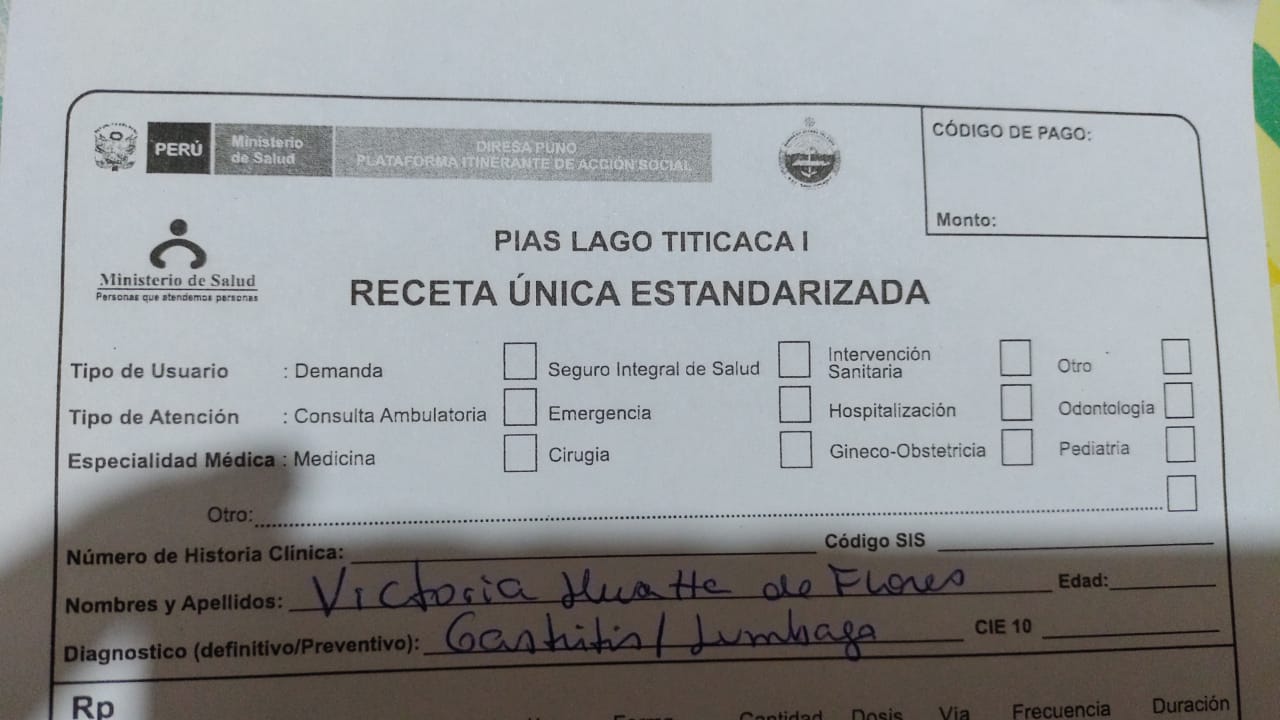 PERÚ Ministerio de Salud DIRESA PUNO PLATAFORMA ITINERANTE DE ACCIÓN SOCIAL
CÓDIGO DE PAGO:
Monto:
Ministerio de Salud
Personas que atendemos personas
PIAS LAGO TITICACA I
RECETA ÚNICA ESTANDARIZADA
Tipo de Usuario : Demanda Seguro Integral de Salud Intervención Sanitaria Otro
Tipo de Atención : Consulta Ambulatoria Emergencia Hospitalización Odontologia
Especialidad Médica : Medicina Cirugia Gineco-Obstetricia Pediatria
Otro:
Número de Historia Clínica: Código SIS
Nombres y Apellidos: Victoria de Flores Edad:
Diagnostico (definitivo/Preventivo): Gastritis/ Lumbago CIE 10
Rp
Cantidad Dosis Via Frecuencia Duración